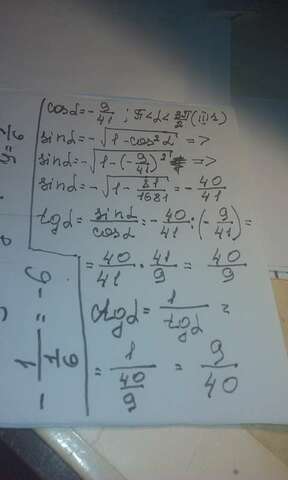 cosα = -9/41 ; π<α<3π/2 (III
sinα = -√(1-cos²α) =>
sinα = -√(1-(-9/41)²) =>
sinα = -√(1-81/1681) = -40/41
tgα = sinα/cosα = -40/41 : (-9/41) =
= 40/41 · 41/9 = 40/9
ctgα = 1/tgα =
= 1/(40/9) = 9/40
-1/(1/6) = -6
y=1/6